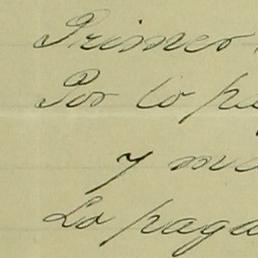 Primero
Por lo pa
y me
Lo paga